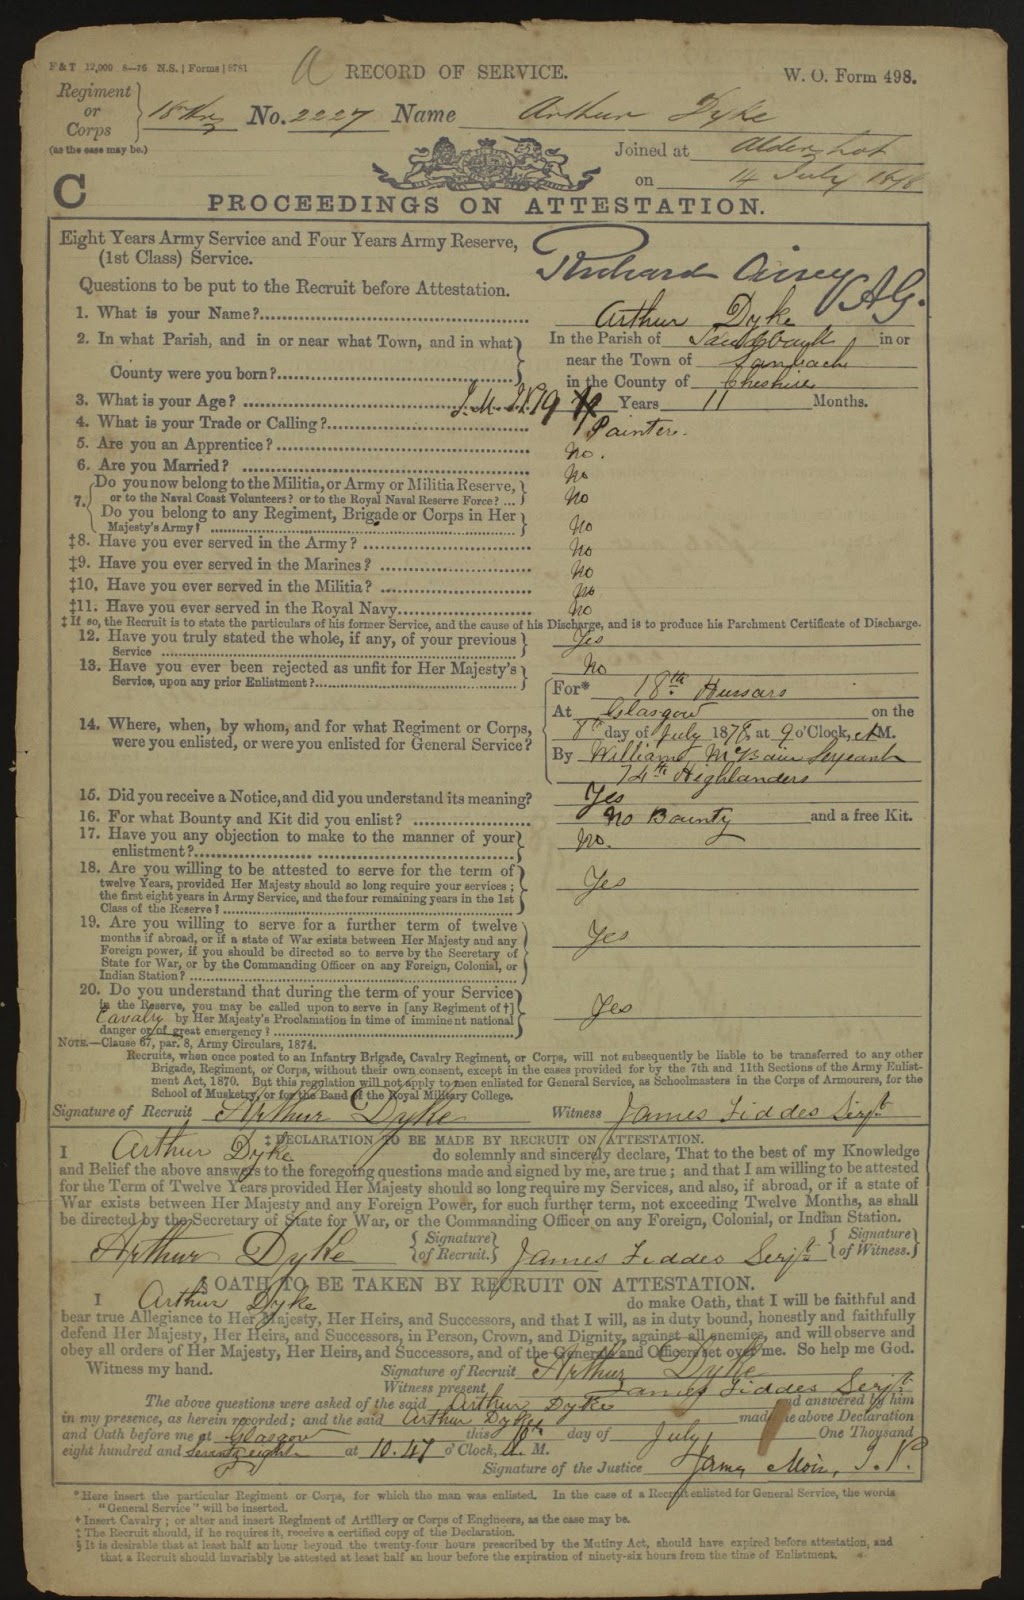 F & T 12,000 8—76 N.S. | Forms | 8781
a RECORD OF SERVICE. W. O. Form 498.
Regiment or Corps (as the case may be.) } 18 Hrs No. 2227 Name Arthur Dyke
Joined at Aldershot
on 14 July 1878
C
PROCEEDINGS ON ATTESTATION.
Eight Years Army Service and Four Years Army Reserve,
(1st Class) Service.
Richard Airey AG.
Questions to be put to the Recruit before Attestation.
1. What is your Name? Arthur Dyke
2. In what Parish, and in or near what Town, and in what County were you born? In the Parish of in or
near the Town of Sandbach
in the County of Cheshire
3. What is your Age? 19 Years 11 Months.
4. What is your Trade or Calling? Painter.
5. Are you an Apprentice? No.
6. Are you Married? No
7. Do you now belong to the Militia, or Army or Militia Reserve,
or to the Naval Coast Volunteers? or to the Royal Naval Reserve Force? ... No
Do you belong to any Regiment, Brigade or Corps in Her
Majesty's Army? No
‡8. Have you ever served in the Army? No
‡9. Have you ever served in the Marines? No
‡10. Have you ever served in the Militia? No
‡11. Have you ever served in the Royal Navy No
‡ If so, the Recruit is to state the particulars of his former Service, and the cause of his Discharge, and is to produce his Parchment Certificate of Discharge.
12. Have you truly stated the whole, if any, of your previous
Service Yes
13. Have you ever been rejected as unfit for Her Majesty's
Service, upon any prior Enlistment? No
14. Where, when, by whom, and for what Regiment or Corps,
were you enlisted, or were you enlisted for General Service?
For* 18th Hussars
At Glasgow on the
8th day of July 1878, at 9 o'Clock, A.M.
By William McBain Serjeant
74th Highlanders
15. Did you receive a Notice, and did you understand its meaning? Yes
16. For what Bounty and Kit did you enlist? No Bounty and a free Kit.
17. Have you any objection to make to the manner of your
enlistment? No.
18. Are you willing to be attested to serve for the term of
twelve Years, provided Her Majesty should so long require your services;
the first eight years in Army Service, and the four remaining years in the 1st
Class of the Reserve? Yes
19. Are you willing to serve for a further term of twelve
months if abroad, or if a state of War exists between Her Majesty and any
Foreign power, if you should be directed so to serve by the Secretary of
State for War, or by the Commanding Officer on any Foreign, Colonial, or
Indian Station? Yes
20. Do you understand that during the term of your Service
in the Reserve, you may be called upon to serve in [any Regiment of †]
Cavalry by Her Majesty's Proclamation in time of imminent national
danger or of great emergency? Yes
NOTE.—Clause 67, par. 8, Army Circulars, 1874.
Recruits, when once posted to an Infantry Brigade, Cavalry Regiment, or Corps, will not subsequently be liable to be transferred to any other
Brigade, Regiment, or Corps, without their own consent, except in the cases provided for by the 7th and 11th Sections of the Army Enlist-
ment Act, 1870. But this regulation will not apply to men enlisted for General Service, as Schoolmasters in the Corps of Armourers, for the
School of Musketry, or for the Band of the Royal Military College.
Signature of Recruit Arthur Dyke Witness James Fiddes Serjt
‡ DECLARATION TO BE MADE BY RECRUIT ON ATTESTATION.
I Arthur Dyke do solemnly and sincerely declare, That to the best of my Knowledge
and Belief the above answers to the foregoing questions made and signed by me, are true; and that I am willing to be attested
for the Term of Twelve Years provided Her Majesty should so long require my Services, and also, if abroad, or if a state of
War exists between Her Majesty and any Foreign Power, for such further term, not exceeding Twelve Months, as shall
be directed by the Secretary of State for War, or the Commanding Officer on any Foreign, Colonial, or Indian Station.
Arthur Dyke { Signature of Recruit. } James Fiddes Serjt { Signature of Witness. }
§ OATH TO BE TAKEN BY RECRUIT ON ATTESTATION.
I Arthur Dyke do make Oath, that I will be faithful and
bear true Allegiance to Her Majesty, Her Heirs, and Successors, and that I will, as in duty bound, honestly and faithfully
defend Her Majesty, Her Heirs, and Successors, in Person, Crown, and Dignity, against all enemies, and will observe and
obey all orders of Her Majesty, Her Heirs, and Successors, and of the Generals and Officers set over me. So help me God.
Witness my hand. Signature of Recruit Arthur Dyke
Witness present James Fiddes Serjt
The above questions were asked of the said Arthur Dyke and answered by him
in my presence, as herein recorded; and the said Arthur Dyke made the above Declaration
and Oath before me at Glasgow this day of July One Thousand
eight hundred and Seventy eight at 10.47 o'Clock, A. M.
Signature of the Justice James Moir, J.P.
* Here insert the particular Regiment or Corps, for which the man was enlisted. In the case of a Recruit enlisted for General Service, the words
"General Service" will be inserted.
† Insert Cavalry; or alter and insert Regiment of Artillery or Corps of Engineers, as the case may be.
‡ The Recruit should, if he requires it, receive a certified copy of the Declaration.
§ It is desirable that at least half an hour beyond the twenty-four hours prescribed by the Mutiny Act, should have expired before attestation, and
that a Recruit should invariably be attested at least half an hour before the expiration of ninety-six hours from the time of Enlistment.